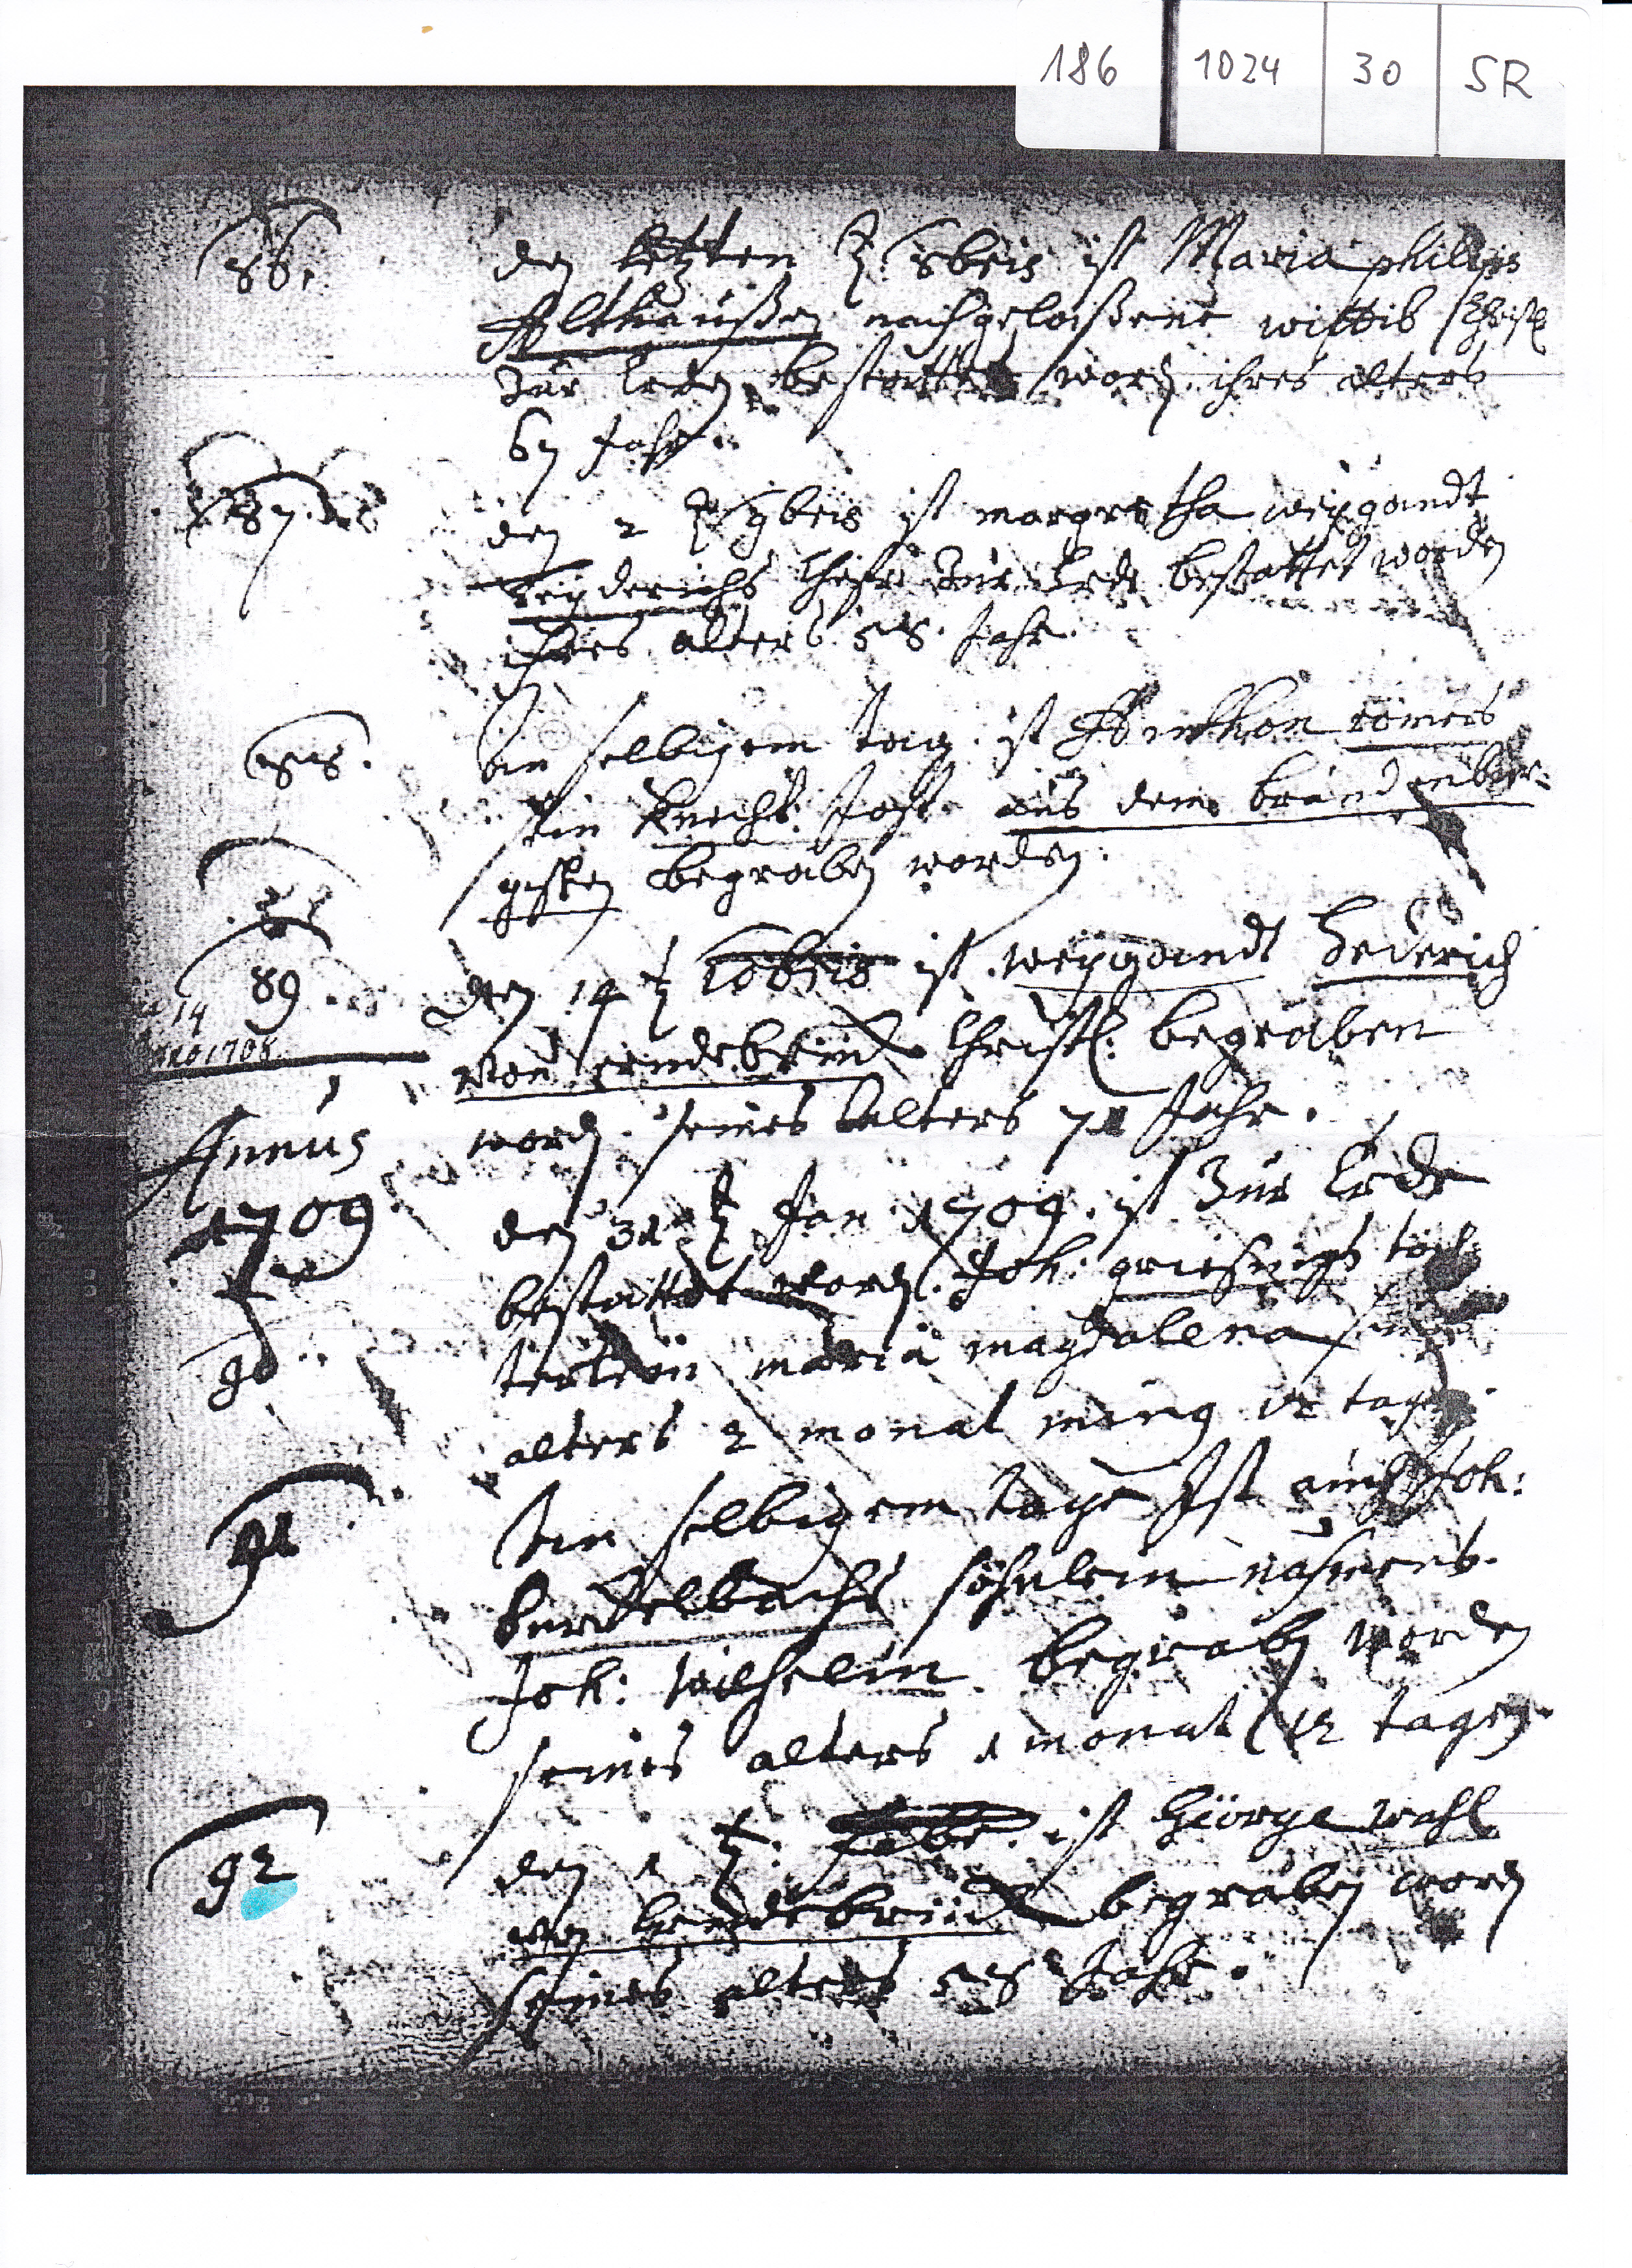 186 | 1024 | 30 | SR
86.
den letzten 8breis ist Maria philips
Althaußen nachgelaßene wittib Christl
zur erden bestattet word. ihres alters
67 Jahr.
87.
den 2 9breis ist margretha weygandt
hederichs Ehefr. zur Erde bestattet worden
ihres alters 58. Jahr.
88.
An selbigem tag ist römers
sein Knecht Jost aus dem brandenbur-
gischen begraben worden.
89
14
ao 1708
den 14 10breis ist weygandt hederich
von erndebrück Christl: begraben
word. seines alters 71 Jahr.
Annus
1709
90
den 31 Jan 1709. ist Zur Erde
bestattet word. Joh: töch
terlein maria magdalena
alters 2 monat 12 tage.
91
An selbigem tage Ist auch Joh:
söhnlein nahmens
Joh: wilhelm begraben worden
seines alters 1 monat 12 tagen.
92
den 1 febr. ist Görge wahl
von Erndebrück begraben word
seines alters 58 Jahr.